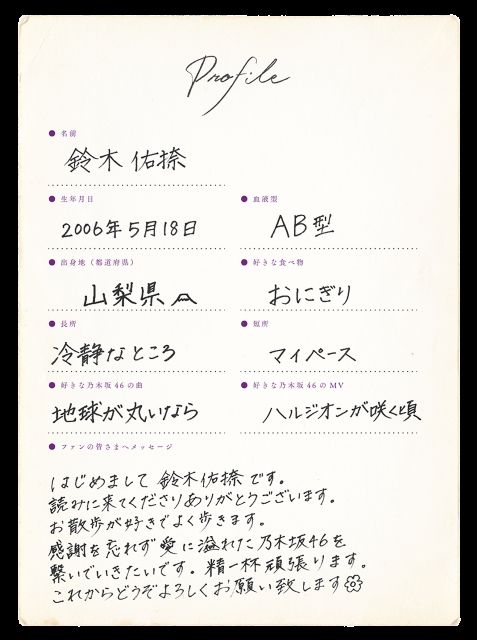 Profile
名前
鈴木 佑捺
生年月日
2006年5月18日
血液型
AB型
出身地(都道府県)
山梨県
好きな食べ物
おにぎり
長所
冷静なところ
短所
マイペース
好きな乃木坂46の曲
地球が丸いなら
好きな乃木坂46のMV
ハルジオンが咲く頃
ファンの皆さまへメッセージ
はじめまして 鈴木佑捺です。
読みに来てくださりありがとうございます。
お散歩が好きでよく歩きます。
感謝を忘れず愛に溢れた乃木坂46を
繋いでいきたいです。精一杯頑張ります。
これからどうぞよろしくお願い致します